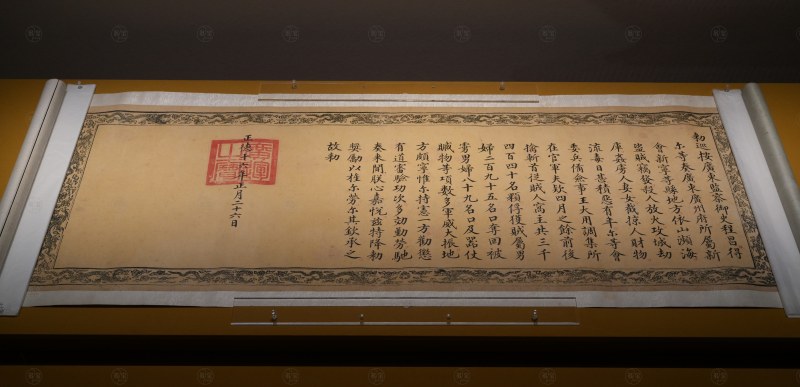 勅巡按廣東監察御史程昌得
尒等奏廣東廣州府所屬新
會新寧等縣地方依山瀕海
盜賊竊發殺人放火攻城劫
庫虜人妻女截掠人財物
流毒日甚積惡有年尒等會
委兵備僉事王大用調集所
在官軍夫欵四月之餘前後
擒斬首從賊人寓主共三千
四百四十名顆俘獲賊屬男
婦二百九十五名口奪回被
虜男婦八十九名口及器仗
贓物等項數多軍威大振地
方頗寧惟尒持憲一方勸懲
有道審驗功次多効勤勞馳
奏來聞朕心嘉悅茲特降勅
獎勵以旌尒勞尒其欽承之
故勅
正德十六年正月二十六日